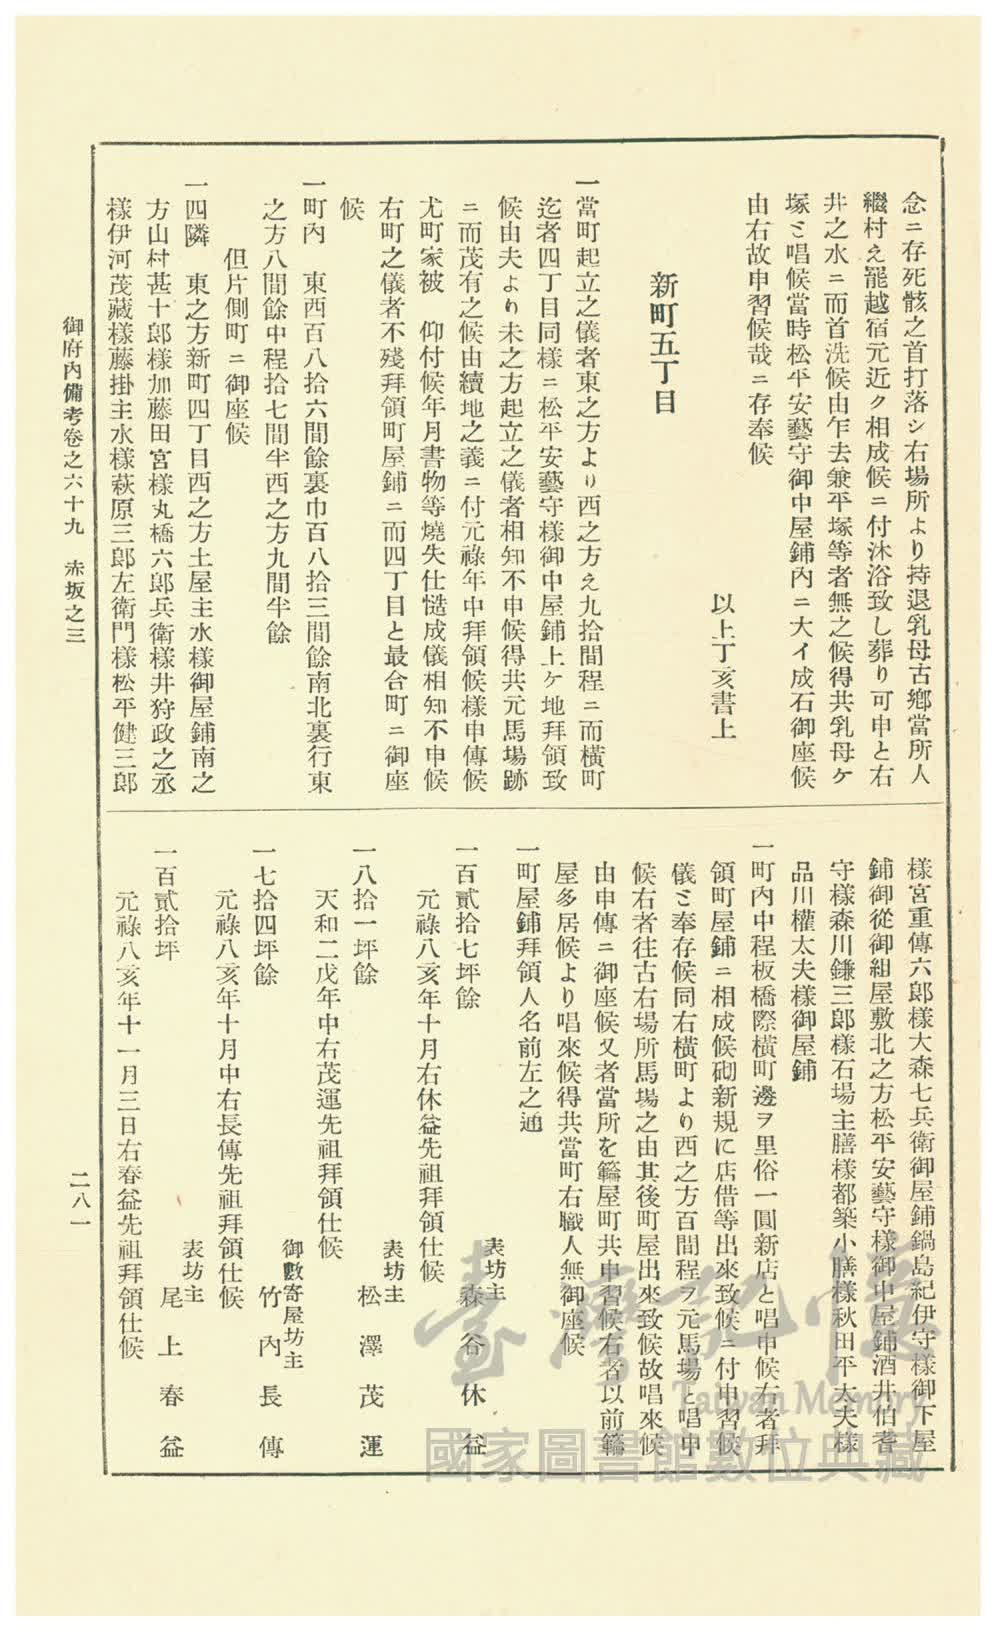 念ニ存死骸之首打落シ右場所より持退乳母古鄕當所人
繼村え罷越宿元近ク相成候ニ付沐浴致し葬り可申と右
井之水ニ而首洗候由乍去兼平塚等者無之候得共乳母ケ
塚ミ唱候當時松平安藝守御中屋鋪內ニ大イ成石御座候
由右故申習候哉ニ存奉候
以上丁亥書上
新町五丁目
一當町起立之儀者東之方より西之方え九拾間程ニ而橫町
迄者四丁目同樣ニ松平安藝守樣御中屋鋪上ケ地拜領致
候由夫より未之方起立之儀者相知不申候得共元馬場跡
ニ而茂有之候由續地之義ニ付元祿年中拜領候樣申傳候
尤町家被　仰付候年月書物等燒失仕慥成儀相知不申候
右町之儀者不殘拜領町屋鋪ニ而四丁目と最合町ニ御座
候
一町內　東西百八拾六間餘裏巾百八拾三間餘南北裏行東
之方八間餘中程拾七間半西之方九間半餘
但片側町ニ御座候
一四隣　東之方新町四丁目西之方土屋主水樣御屋鋪南之
方山村甚十郎樣加藤田宮樣丸橋六郎兵衛樣井狩政之丞
樣伊河茂藏樣藤掛主水樣萩原三郎左衛門樣松平健三郎
樣宮重傳六郎樣大森七兵衛御屋鋪鍋島紀伊守樣御下屋
鋪御從御紺屋敷北之方松平安藝守樣御中屋鋪酒井伯耆
守樣森川鎌三郎樣石場主膳樣都築小膳樣秋田平太夫樣
品川權太夫樣御屋鋪
一町內中程板橋際橫町邊ヲ里俗一圓新店と唱申候右者拜
領町屋鋪ニ相成候砌新規に店借等出來致候ニ付申習候
儀ミ奉存候同右橫町より西之方百間程ヲ元馬場と唱申
候右者往古右場所馬場之由其後町屋出來致候故唱來候
由申傳ニ御座候又者當所を籥屋町共申習候右者以前籥
屋多居候より唱來候得共當町右職人無御座候
一町屋鋪拜領人名前左之通
一百貳拾七坪餘
表坊主
森谷休益
元祿八亥年十月右休益先祖拜領仕候
一八拾一坪餘
表坊主
松澤茂運
天和二戌年中右茂運先祖拜領仕候
一七拾四坪餘
御數寄屋坊主
竹內長傳
元祿八亥年十月中右長傳先祖拜領仕候
一百貳拾坪
表坊主
尾上春益
元祿八亥年十一月三日右春益先祖拜領仕候
御府內備考卷之六十九　赤坂之三
二八一
臺灣記憶
Taiwan Memory
國家圖書館數位典藏